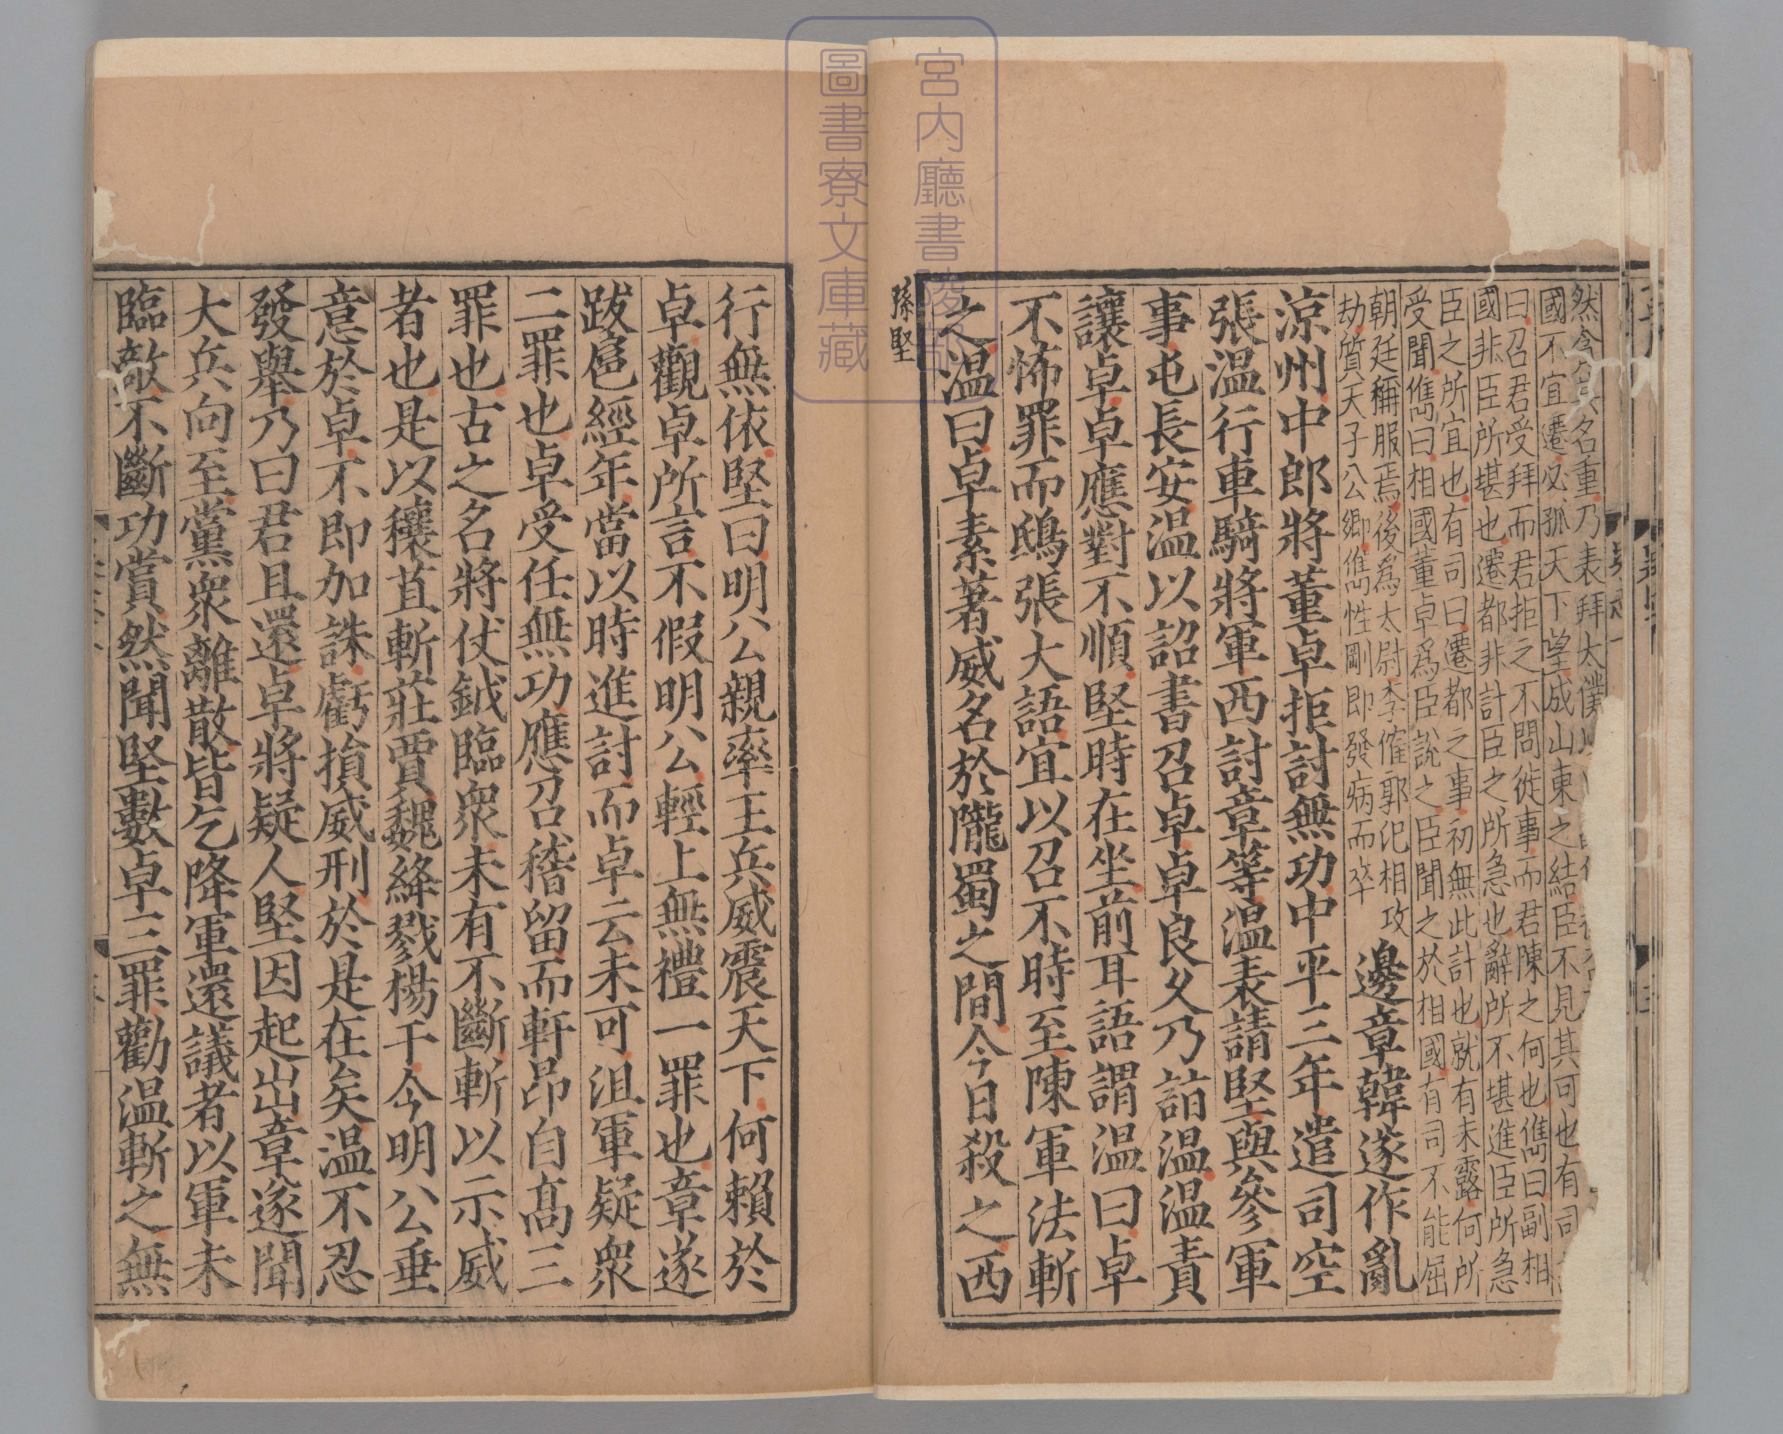 然貪其名重乃表拜太僕以
國不宜遷必孤天下望成山東之結臣不見其可也有司
曰召君受拜而君拒之不問徙事而君陳之何也儁曰副相
國非臣所堪也遷都非計臣之所急也辭所不堪進臣所急
臣之所宜也有司曰遷都之事初無此計也就有未露何所
受聞儁曰相國董卓爲臣說之臣聞之於相國有司不能屈
朝廷稱服焉後爲太尉李傕郭汜相攻
劫質天子公卿儁性剛即發病而卒
邊章韓遂作亂
涼州中郎將董卓拒討無功中平三年遣司空
張溫行車騎將軍西討章等溫表請堅與參軍
事屯長安溫以詔書召卓卓良久乃詣溫溫責
讓卓卓應對不順堅時在坐前耳語謂溫曰卓
不怖罪而鴟張大語宜以召不時至陳軍法斬
之溫曰卓素著威名於隴蜀之間今日殺之西
孫堅
宮內廳書陵部
圖書寮文庫藏
行無依堅曰明公親率王兵威震天下何賴於
卓觀卓所言不假明公輕上無禮一罪也章遂
跋扈經年當以時進討而卓云未可沮軍疑衆
二罪也卓受任無功應召稽留而軒昂自高三
罪也古之名將仗鉞臨衆未有不斷斬以示威
者也是以穰苴斬莊賈魏絳戮楊干今明公垂
意於卓不即加誅虧損威刑於是在矣溫不忍
發舉乃曰君且還卓將疑人堅因起出章遂聞
大兵向至黨衆離散皆乞降軍還議者以軍未
臨敵不斷功賞然聞堅數卓三罪勸溫斬之無